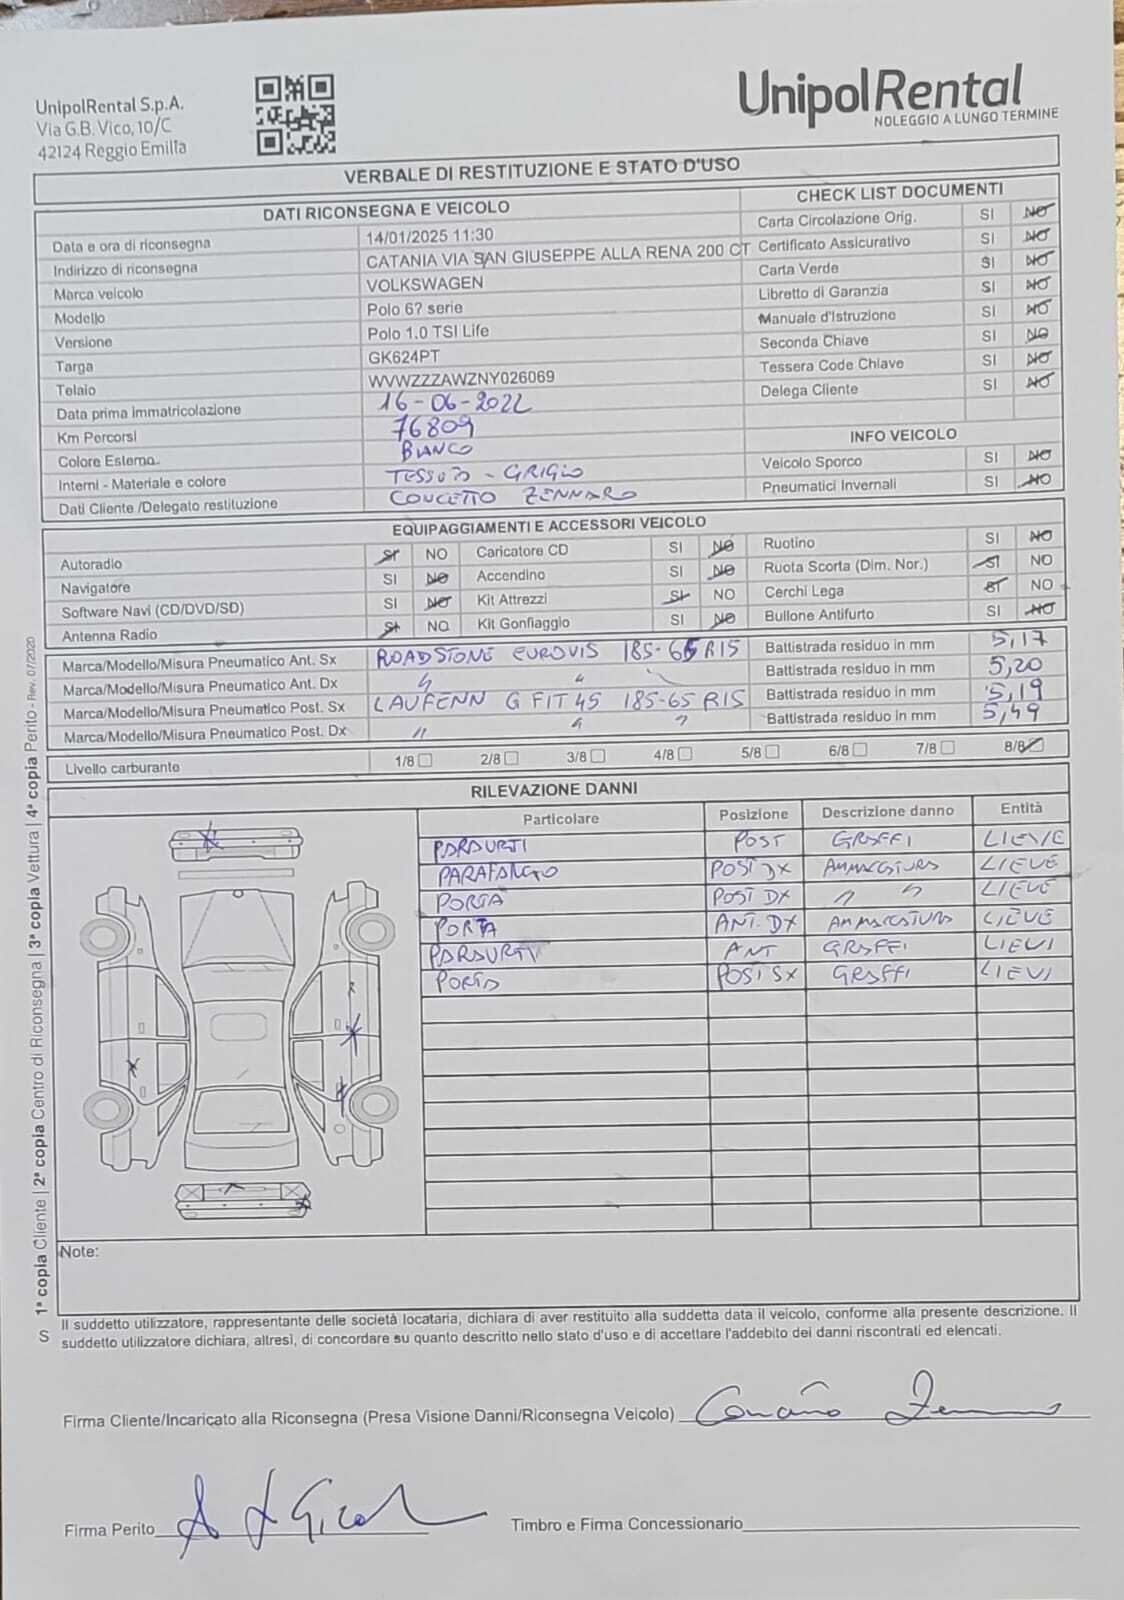 UnipolRental S.p.A.
Via G.B. Vico, 10/C
42124 Reggio Emilia
UnipolRental
NOLEGGIO A LUNGO TERMINE
VERBALE DI RESTITUZIONE E STATO D'USO
DATI RICONSEGNA E VEICOLO
Data e ora di riconsegna 14/01/2025 11:30
Indirizzo di riconsegna CATANIA VIA SAN GIUSEPPE ALLA RENA 200 CT
Marca veicolo VOLKSWAGEN
Modello Polo 6? serie
Versione Polo 1.0 TSI Life
Targa GK624PT
Telaio WVWZZZAWZNY026069
Data prima immatricolazione 16-06-2022
Km Percorsi 76809
Colore Esterno BIANCO
Interni - Materiale e colore TESSUTO - GRIGIO
Dati Cliente /Delegato restituzione CONCETTO ZENNARO
CHECK LIST DOCUMENTI
Carta Circolazione Orig. SI NO
Certificato Assicurativo SI NO
Carta Verde SI NO
Libretto di Garanzia SI NO
Manuale d'Istruzione SI NO
Seconda Chiave SI NO
Tessera Code Chiave SI NO
Delega Cliente SI NO
INFO VEICOLO
Veicolo Sporco SI NO
Pneumatici Invernali SI NO
EQUIPAGGIAMENTI E ACCESSORI VEICOLO
Autoradio SI NO Caricatore CD SI NO Ruotino SI NO
Navigatore SI NO Accendino SI NO Ruota Scorta (Dim. Nor.) SI NO
Software Navi (CD/DVD/SD) SI NO Kit Attrezzi SI NO Cerchi Lega SI NO
Antenna Radio SI NO Kit Gonfiaggio SI NO Bullone Antifurto SI NO
Marca/Modello/Misura Pneumatico Ant. Sx ROADSTONE EUROVIS 185-65 R15 Battistrada residuo in mm 5,17
Marca/Modello/Misura Pneumatico Ant. Dx " " Battistrada residuo in mm 5,20
Marca/Modello/Misura Pneumatico Post. Sx LAUFENN G FIT 45 185-65 R15 Battistrada residuo in mm 5,19
Marca/Modello/Misura Pneumatico Post. Dx " " " Battistrada residuo in mm 5,49
Livello carburante 1/8 2/8 3/8 4/8 5/8 6/8 7/8 8/8
RILEVAZIONE DANNI
Particolare Posizione Descrizione danno Entità
PARAURTI POST GRAFFI LIEVE
PARAFANGO POST DX AMMACCATURA LIEVE
PORTA POST DX " " LIEVE
PORTA ANT. DX AMMACCATURA LIEVE
PARAURTI ANT GRAFFI LIEVI
PORTA POST SX GRAFFI LIEVI
Note:
Il suddetto utilizzatore, rappresentante delle società locataria, dichiara di aver restituito alla suddetta data il veicolo, conforme alla presente descrizione. Il
suddetto utilizzatore dichiara, altresì, di concordare su quanto descritto nello stato d'uso e di accettare l'addebito dei danni riscontrati ed elencati.
Firma Cliente/Incaricato alla Riconsegna (Presa Visione Danni/Riconsegna Veicolo)
Firma Perito
Timbro e Firma Concessionario
S 1ª copia Cliente | 2ª copia Centro di Riconsegna | 3ª copia Vettura | 4ª copia Perito - Rev. 07/2020